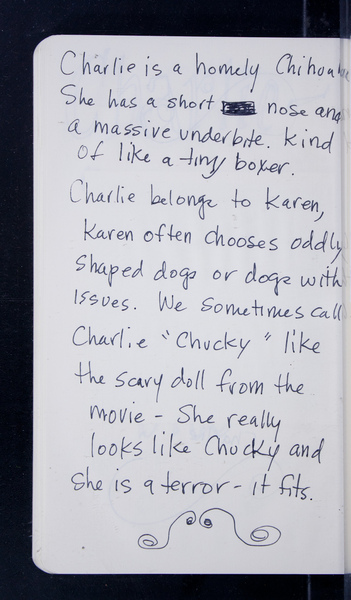 Charlie is a homely Chihuahua
She has a short nose and
a massive underbite. Kind
of like a tiny boxer.
Charlie belongs to Karen,
Karen often chooses oddly
shaped dogs or dogs with
issues. We sometimes call
Charlie "Chucky" like
the scary doll from the
movie - She really
looks like Chucky and
she is a terror - it fits.